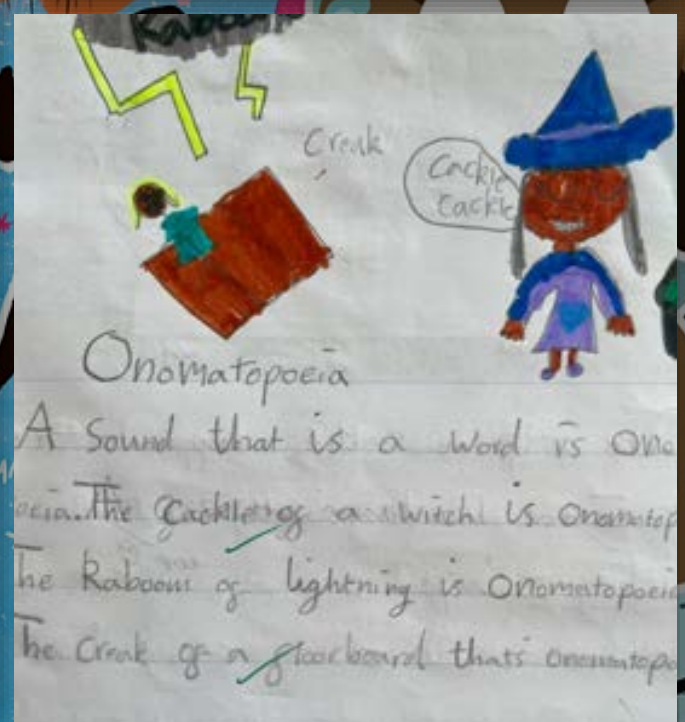 Kaboom
Creak
Cackle
Cackle
Onomatopoeia
A Sound that is a word is Ono
oeia. The Cackle of a witch is Onomatop
The Kaboom of lightning is Onomatopoeia
The Creak of a floorboard thats onomatopo